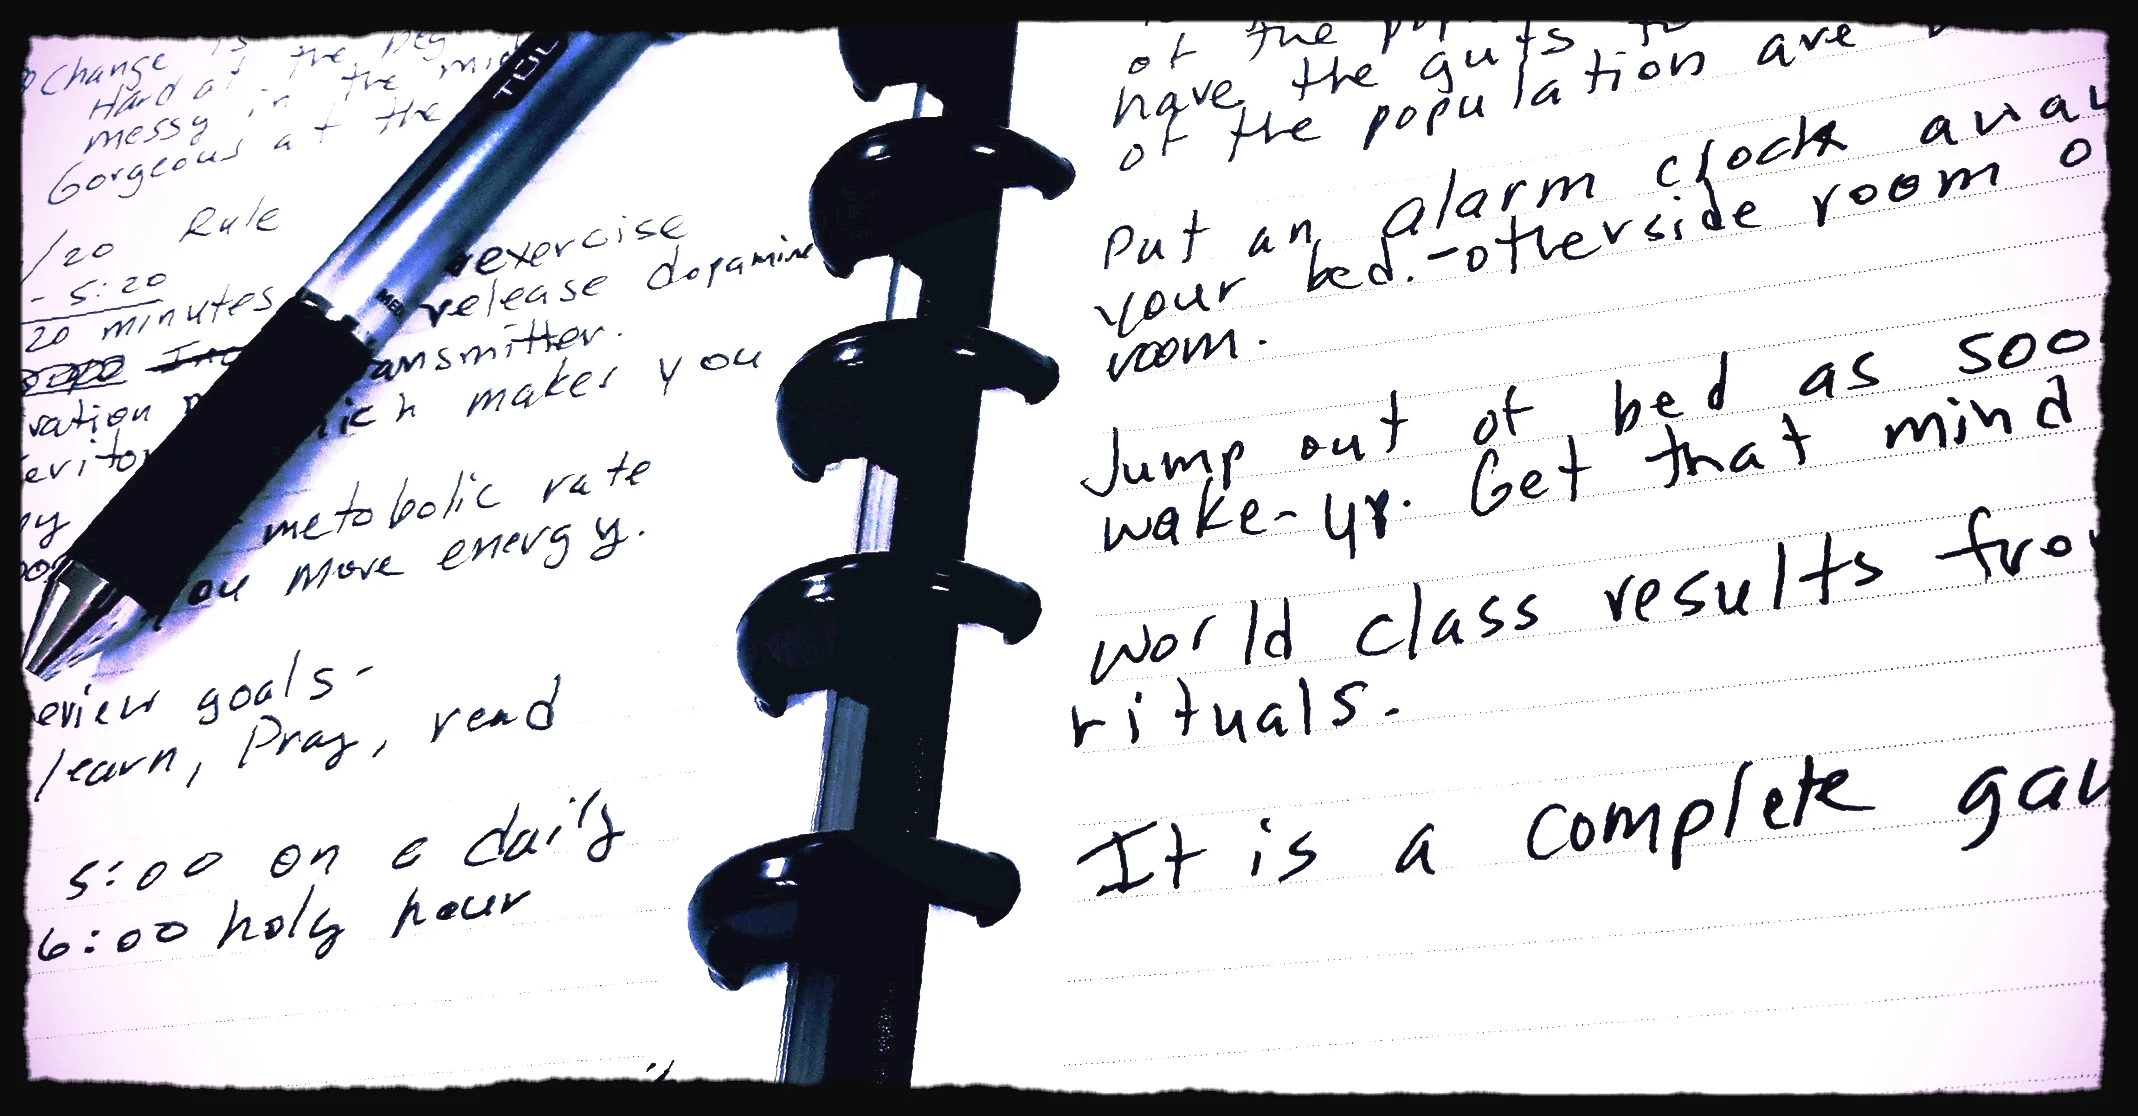 Change is
Hard at the beg
messy in the mid
Gorgeous at the
/20 Rule
- 5:20
20 minutes exercise
release dopamine
ansmitter.
vation ich makes you
metabolic rate
ou more energy.
eview goals-
learn, Pray, read
5:00 on a daily
6:00 holy hour
TUL
of the pop
have the guts to
of the population are
Put an alarm clock awa
your bed. - otherside room o
room.
Jump out of bed as soo
wake-up. Get that mind
World class results from
rituals.
It is a complete gam